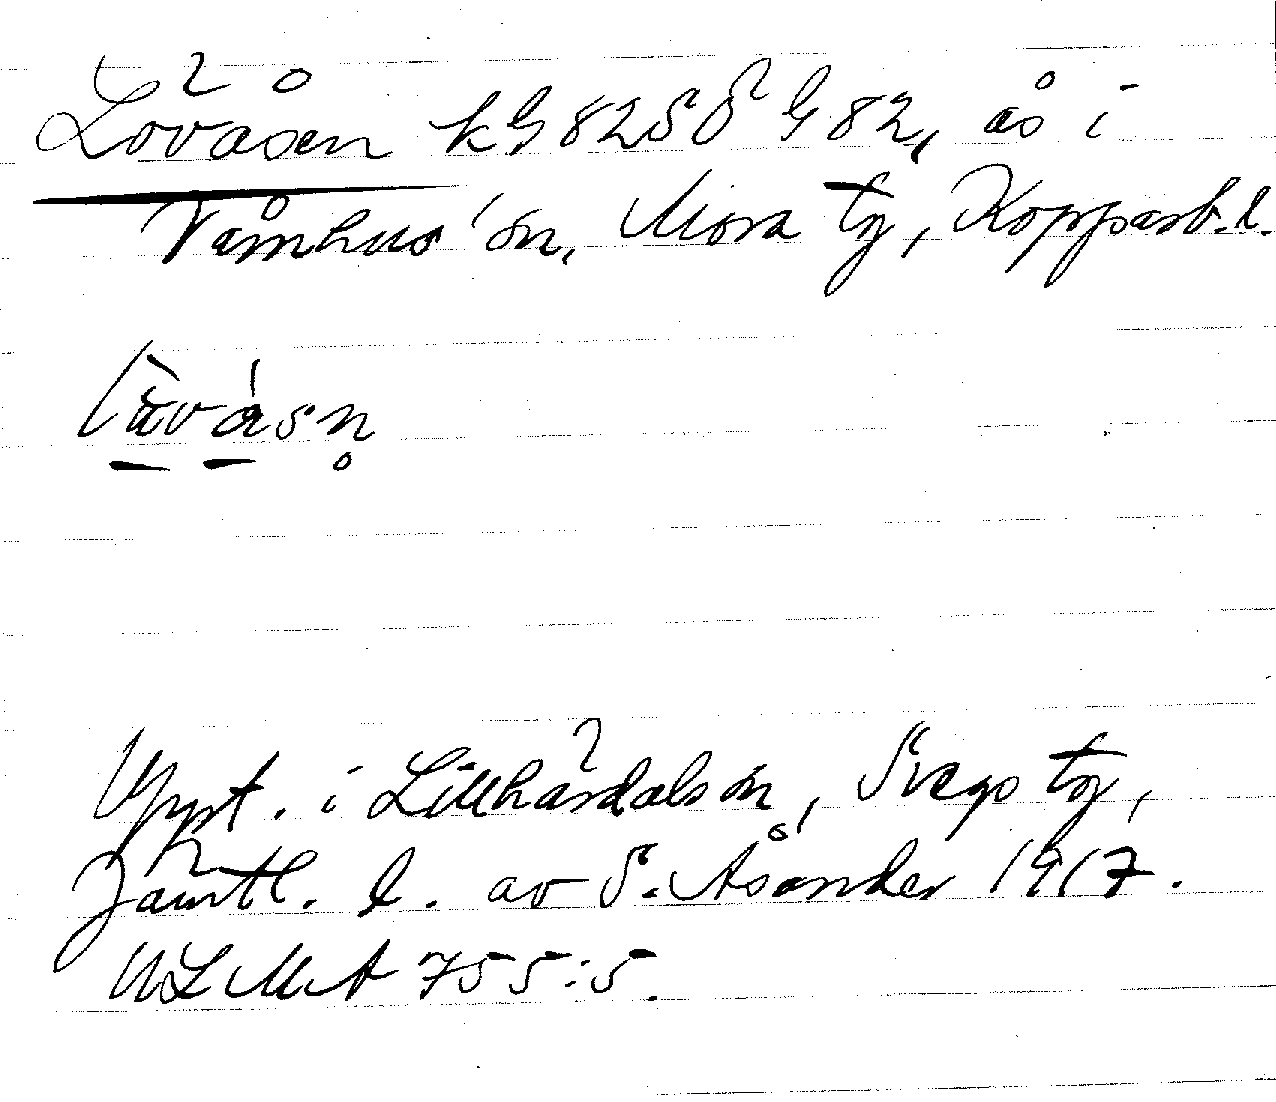 Lövåsen k G 82 SÖ G 82, ås i
Våmhus sn, Mora tg, Kopparb. l.
Uppt. i Lillhärdals sn, Svegs tg,
Jämtl. l. av S. Åsander 1917.
ULMA 755:5.